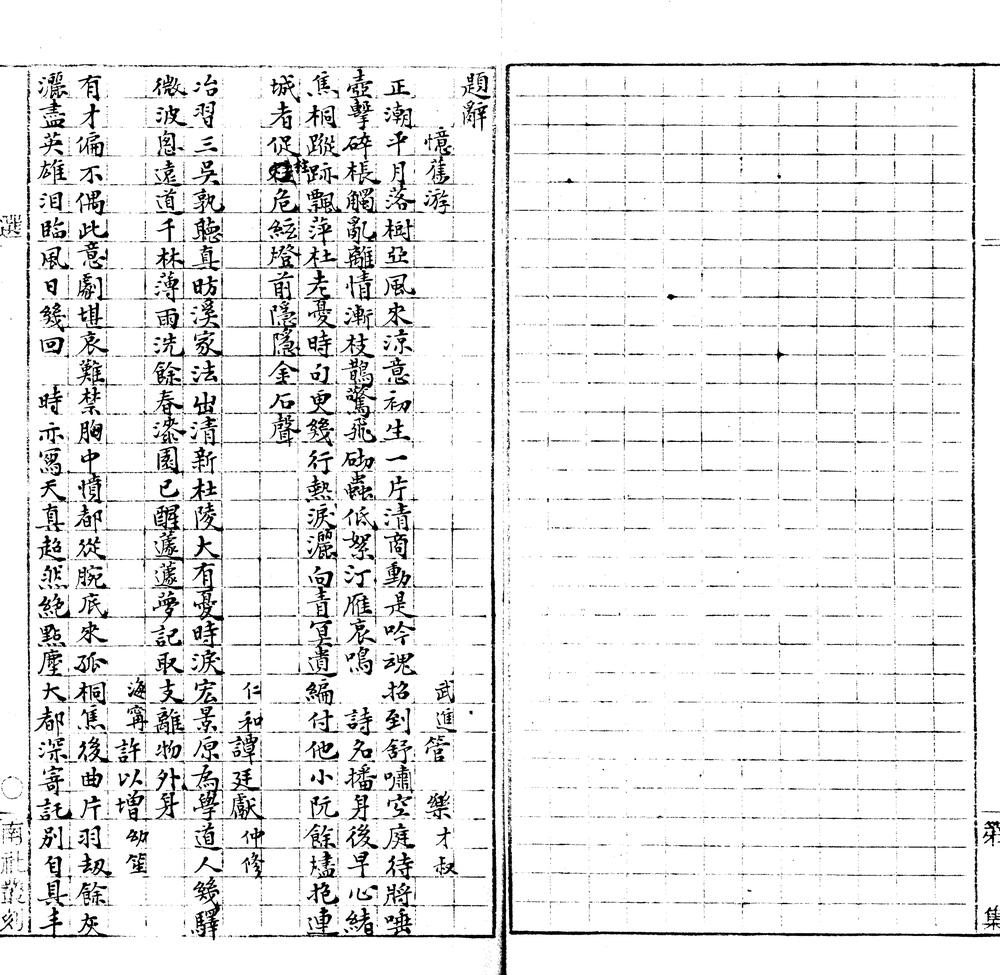 題辭
憶舊游　武進管　樂才叔
正潮平月落樹亞風來涼意初生一片清商動是吟魂招到舒嘯空庭待將唾
壺擊碎棖觸亂離情漸枝鵲驚飛砌蟲低絮汀雁哀鳴　詩名播身後早心緒
焦桐蹤跡飄萍杜老憂時句更幾行熱淚灑向青冥遺編付他小阮餘燼抱連
城者促柱危絃燈前隱隱金石聲
仁和譚廷獻仲修
冶習三吳孰聽真昉溪家法出清新杜陵大有憂時淚宏景原為學道人幾驛
微波恩遠道千林薄雨洗餘春漆園已醒蘧蘧夢記取支離物外身
海寧許以增幼笙
有才偏不偶此意劇堪哀難禁胸中憤都從腕底來孤桐焦後曲片羽劫餘灰
灑盡英雄淚臨風日幾回　時亦寫天真超然絶點塵大都深寄託別自具丰
選
南社叢刻
第
集